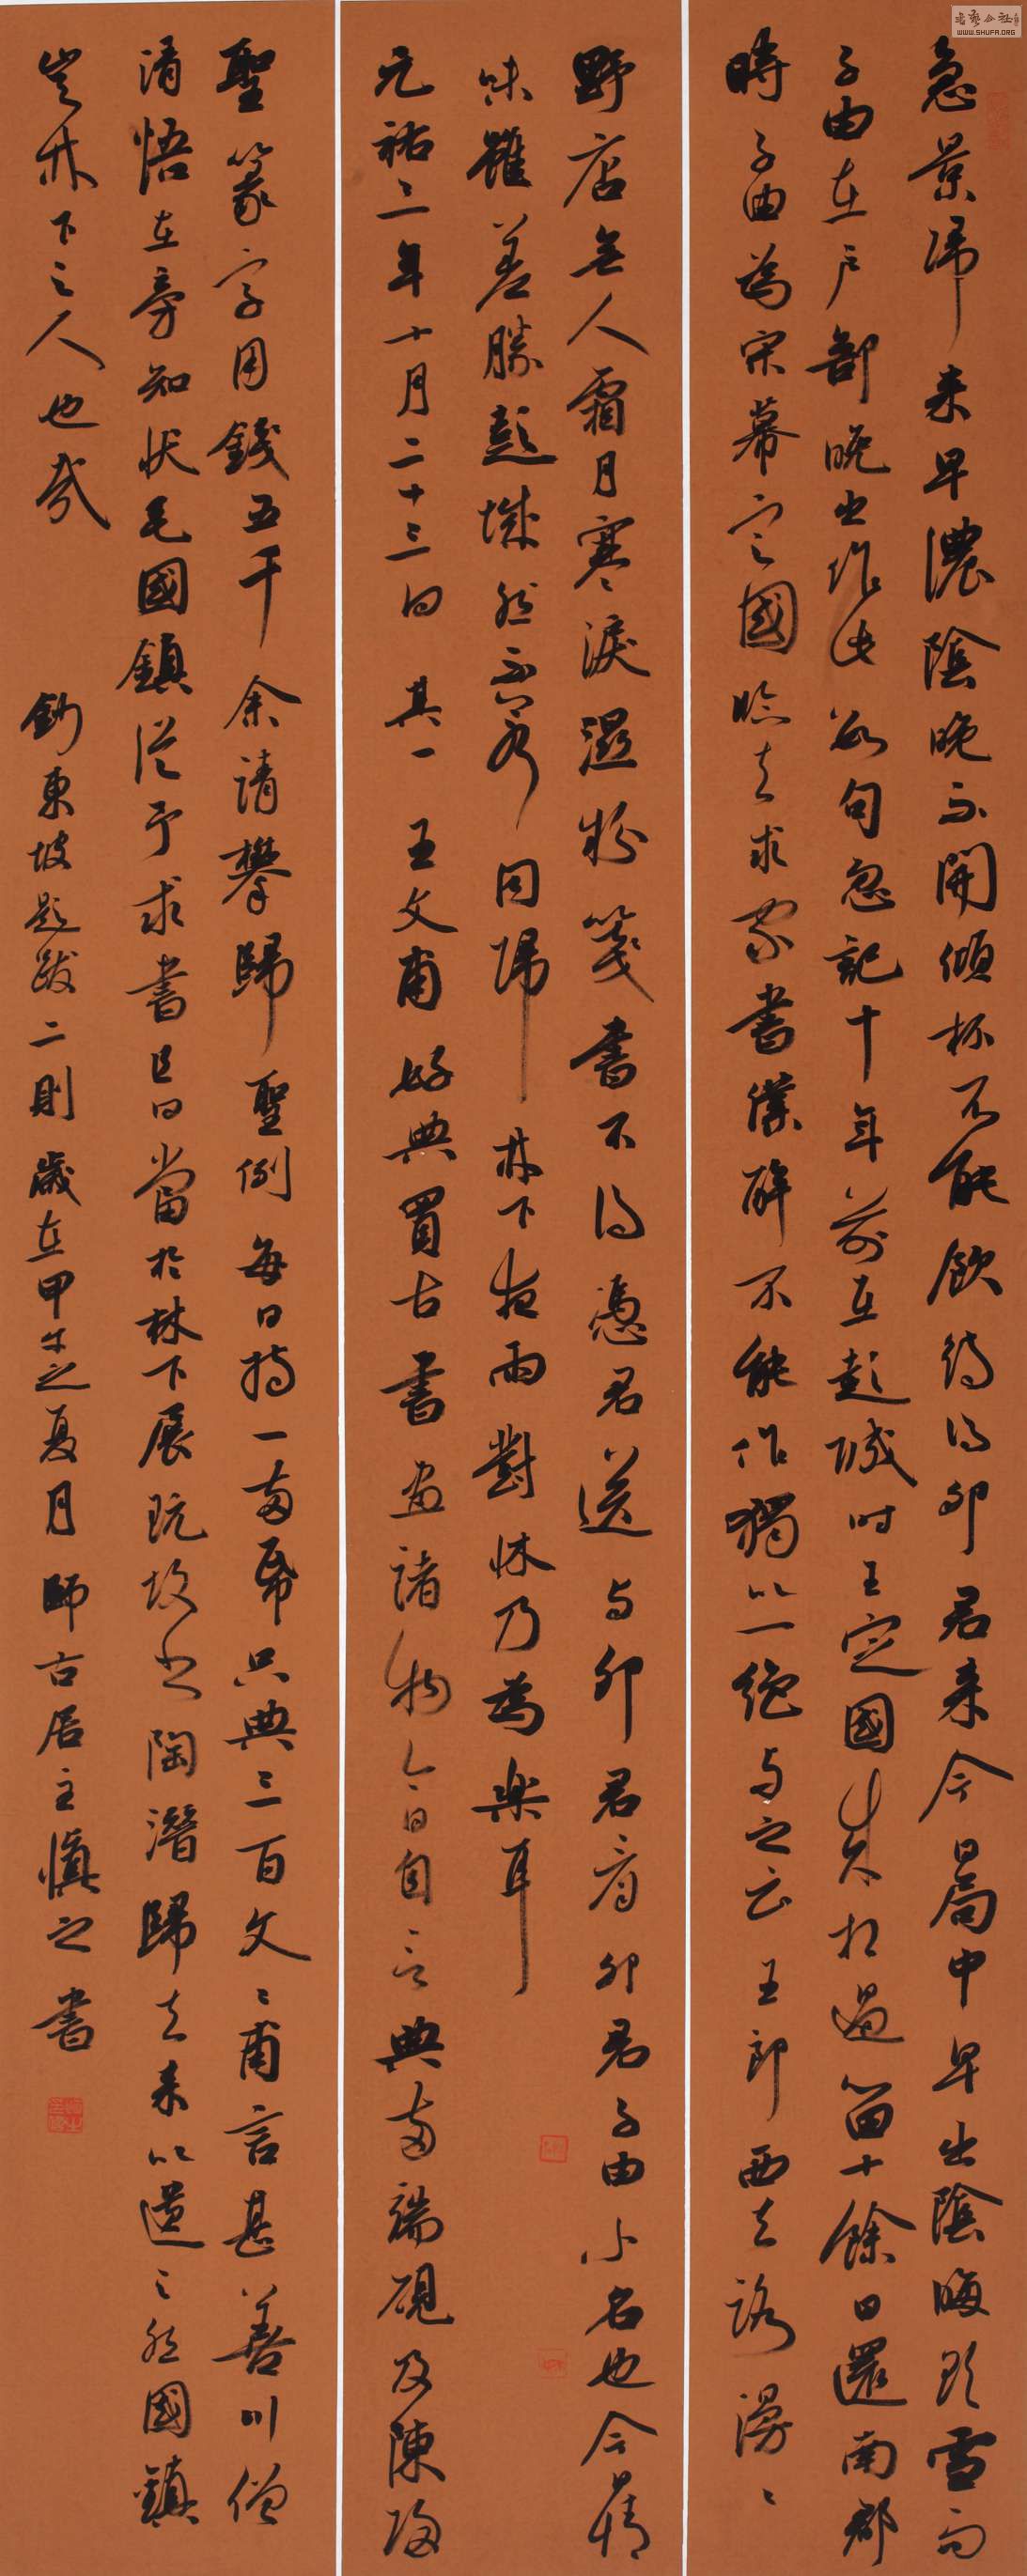 急景歸來早濃陰晚不開傾杯不能飲待得卯君來今日局中早出陰晦欲雪而
子由在戶部晚出作此數句忽記十年前在彭城時王定國來相過留十餘日還南都
時子由為宋幕定國臨去求家書僕醉不能作獨以一絕與之云王郎西去路漫〻
野店無人霜月寒淚濕粉箋書不得憑君送與卯君看卯君子由小名也今情
味雖差勝彭城然不若同歸林下夜雨對床乃為樂耳
元祐三年十月二十三日 其一 王文甫好典買古書畫諸物今日自言典兩端硯及陳歸
聖篆字用錢五千余請攀歸聖例每日持一兩紙只典三百文〻甫言甚善川僧
清悟在旁知狀毛國鎮從予求書且曰當於林下展玩故書陶潛歸去來以遺之然國鎮
豈林下之人也哉 鈔東坡題跋二則歲在甲午之夏月師古居主慎之書
WWW.SHUFA.ORG